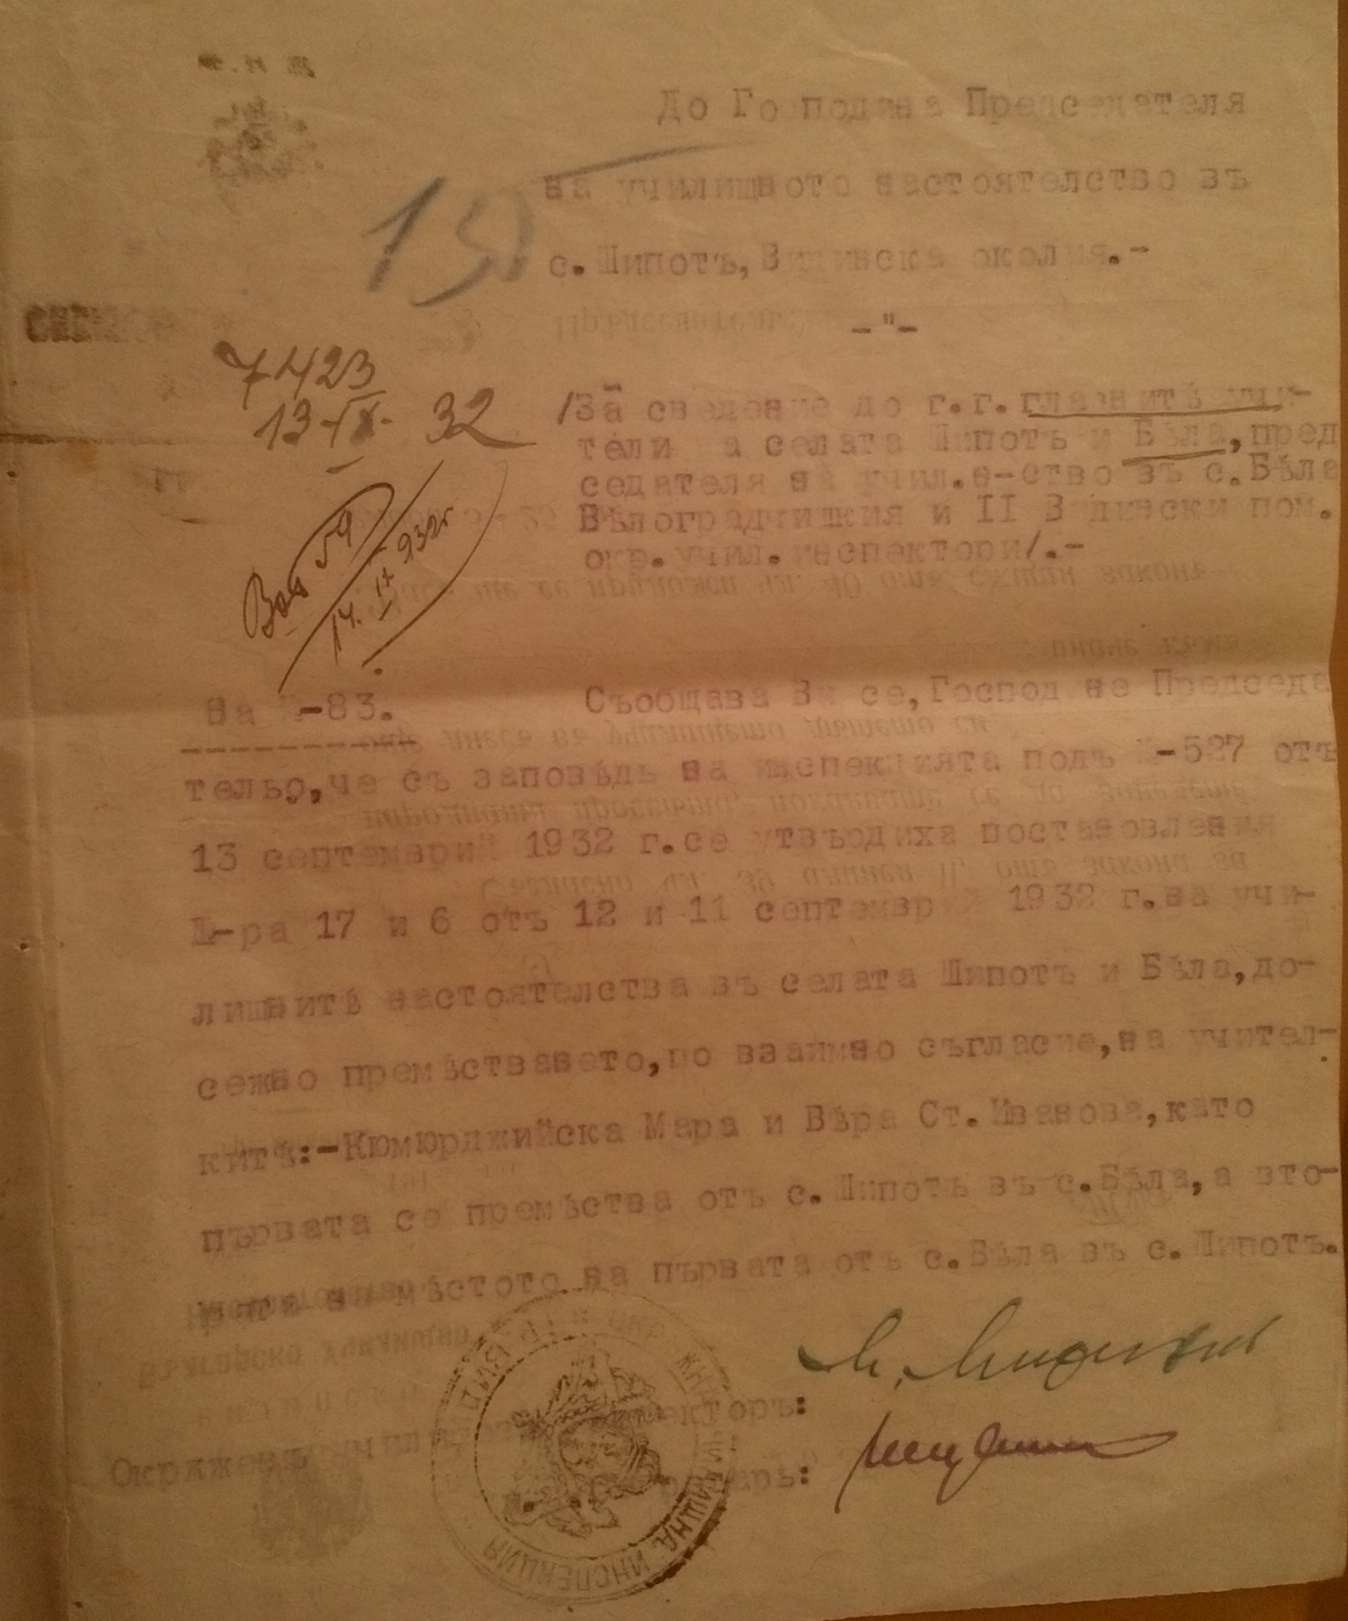 До Господина Председателя
на училищното настоятелство въ
с. Шипотъ, Видинска околия.-
-"-
15
7423
13-IX- 32
Вх. 59
14. IX 932г
/За сведение до г.г. главнитѣ учи-
тели на селата Шипотъ и Бѣла, пред
седателя на учил. н-ство въ с. Бѣла
Бѣлоградчишкия и II Видински пом.
окр. учил. инспектори/.-
На №-83. Съобщава Ви се, Господине Председа
телю, че съ заповѣдь на инспекцията подъ №-527 отъ
13 септемврий 1932 г. се утвърдиха постановления
№-ра 17 и 6 отъ 12 и 11 септемврий 1932 г. на учи-
лищнитѣ настоятелства въ селата Шипотъ и Бѣла, до-
сежно премѣстването, по взаимно съгласие, на учител-
китѣ:-Кюмюрджийска Мара и Вѣра Ст. Иванова, като
първата се премѣства отъ с. Шипотъ въ с. Бѣла, а вто-
рата на мѣстото на първата отъ с. Бѣла въ с. Шипотъ.
Окрѫженъ училищенъ инспекторъ:
Секретарь:
ВИДИНСКА ОКРѪЖНА УЧИЛИЩНА ИНСПЕКЦИЯ